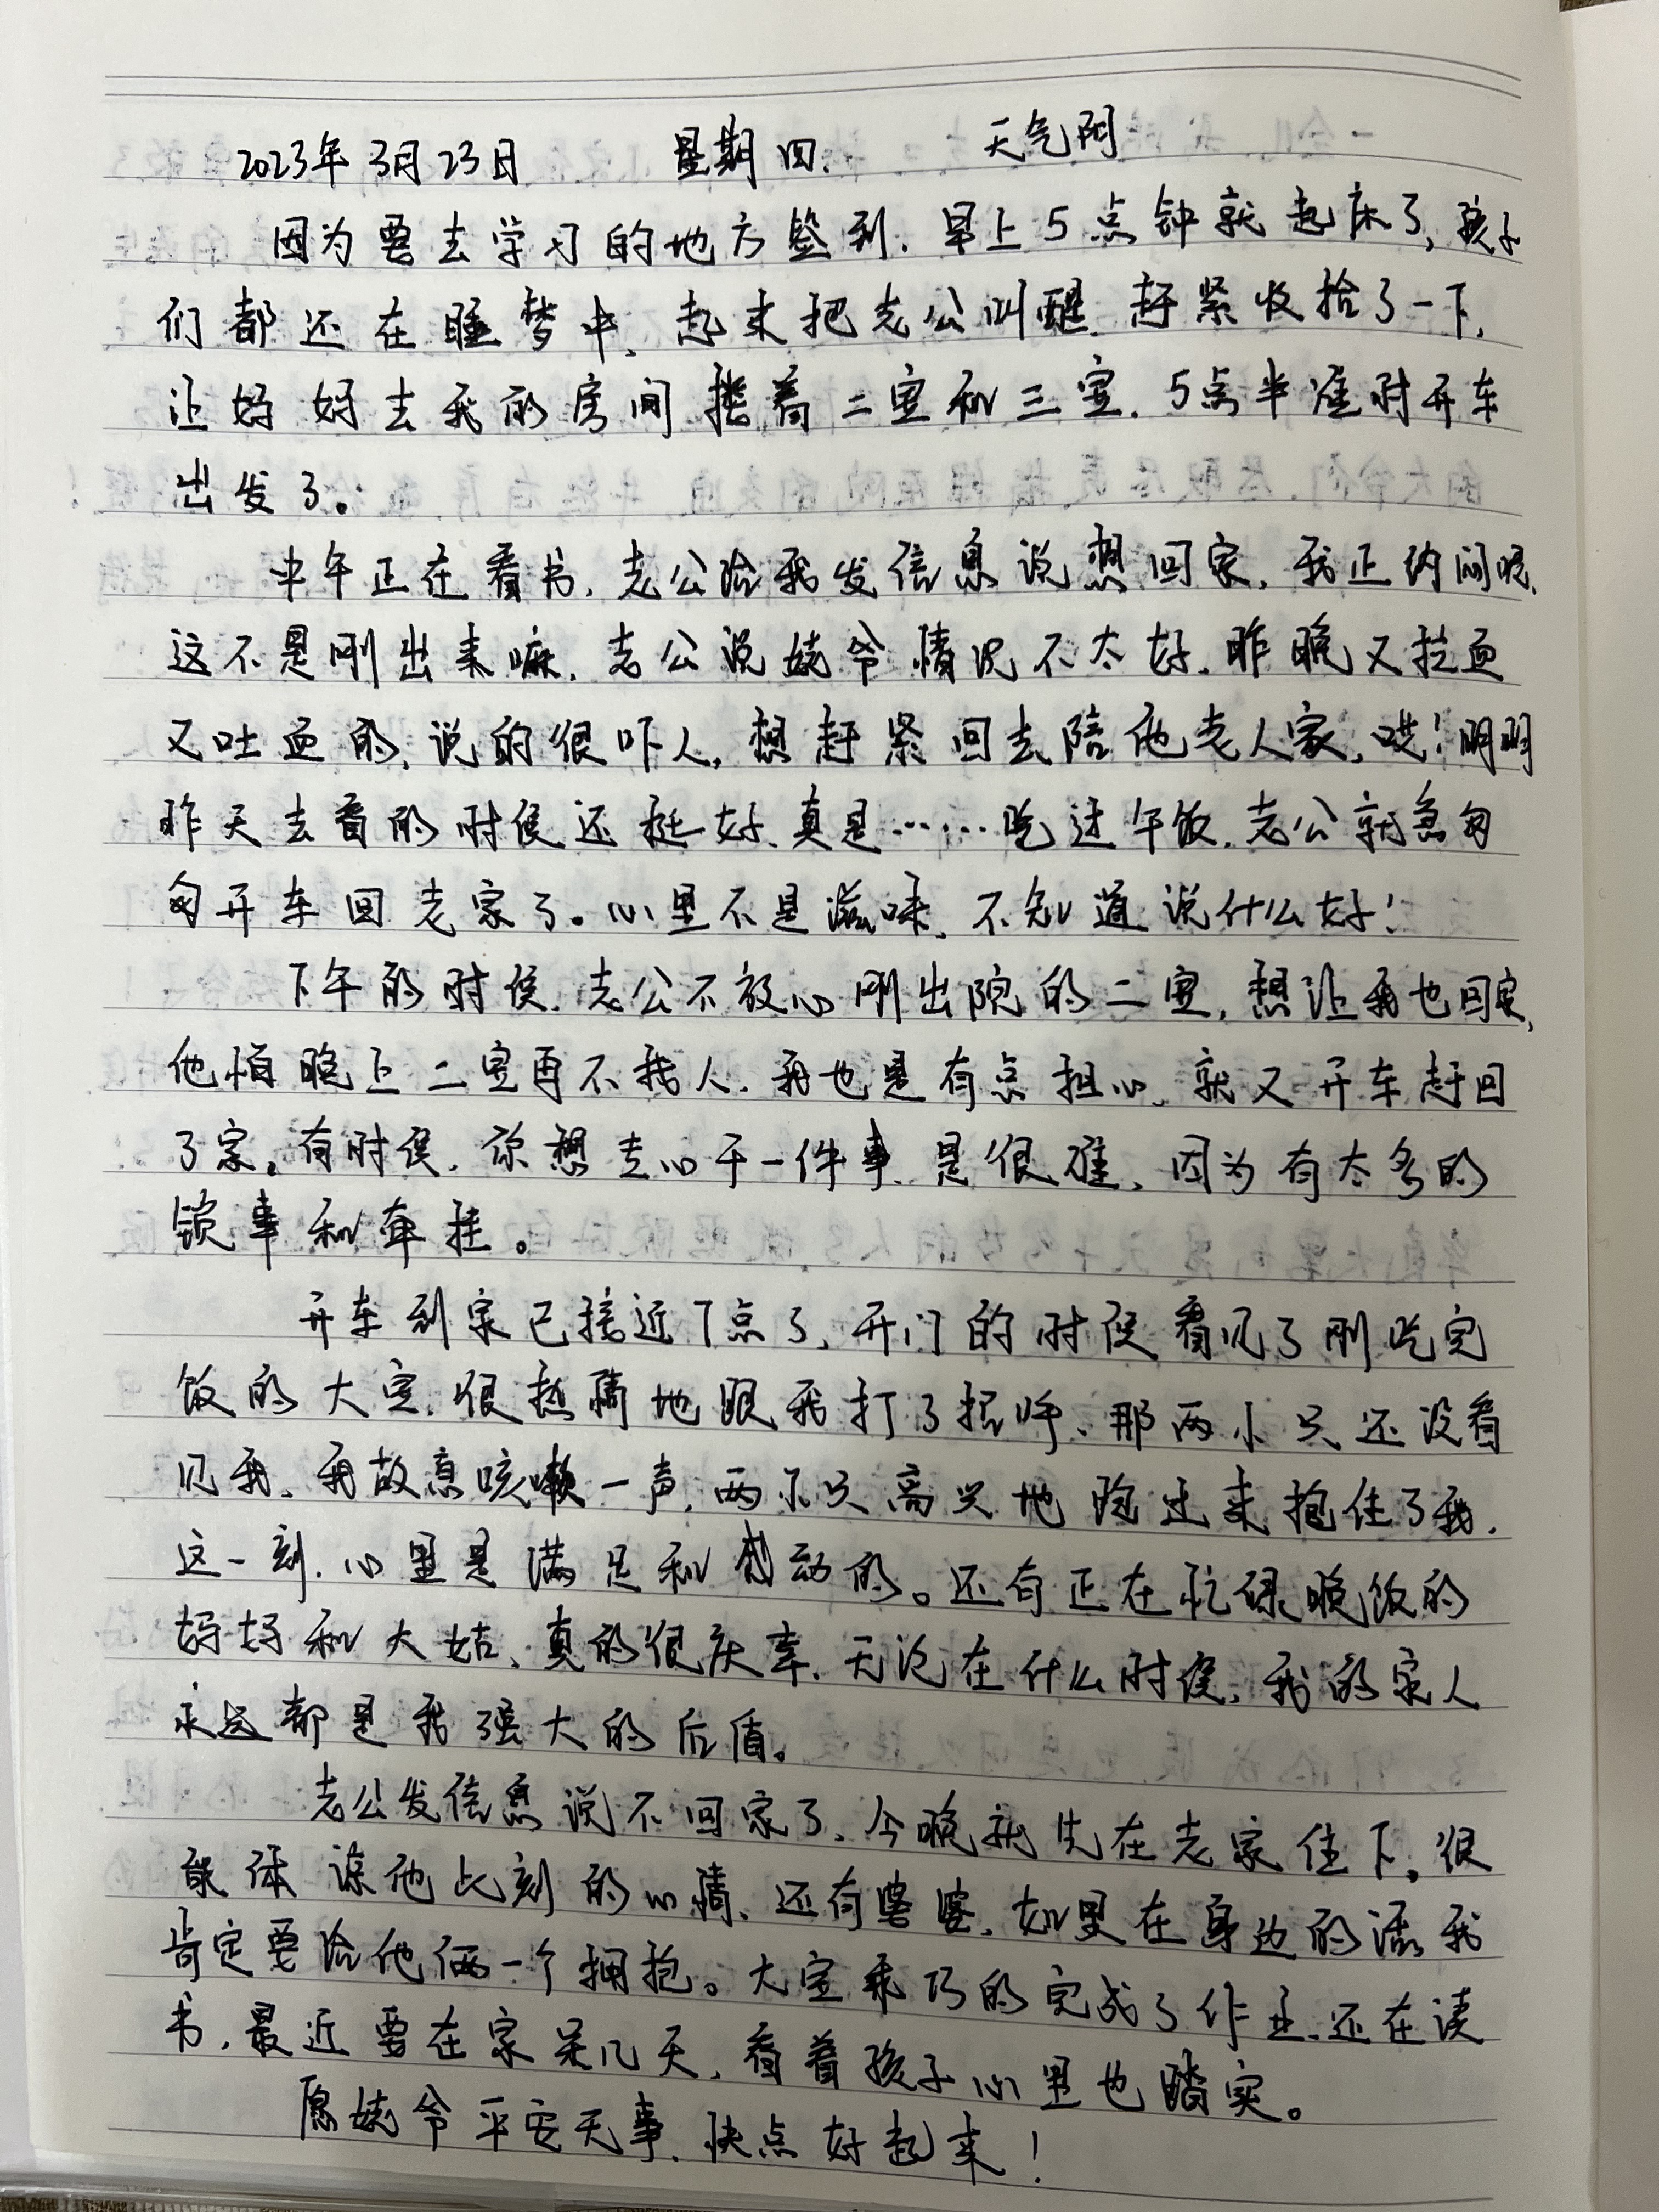 2023年3月23日 星期四. 天气阴
因为要去学习的地方签到.早上5点钟就起床了,孩子
们都还在睡梦中、起来把老公叫醒.赶紧收拾了一下.
让妈妈去我的房间搂着二宝和三宝.5点半准时开车
出发了。
中午正在看书.老公给我发信息说想回家.我正纳闷呢.
这不是刚出来嘛.老公说姥爷情况不太好.昨晚又拉血
又吐血的,说的很吓人,想赶紧回去陪他老人家,哎!明明
昨天去看的时候还挺好、真是……吃过午饭.老公就急匆
匆开车回老家了。心里不是滋味、不知道说什么好!
下午的时候.老公不放心刚出院的二宝,想让我也回家,
他怕晚上二宝再不找人.我也是有点担心、就又开车赶回
了家。有时候.你想专心干一件事、是很难、因为有太多的
锁事和牵挂。
开车到家已接近7点了,开门的时候看见了刚吃完
饭的大宝.很热情地跟我打了招呼、那两小只还没看
见我、我故意咳嗽一声,两小只高兴地跑过来抱住了我.
这一刻.心里是满足和感动的。还有正在忙碌晚饭的
妈妈和大姑、真的很庆幸.无论在什么时候,我的家人
永远都是我强大的后盾。
老公发信息说不回家了、今晚就先在老家住下。很
能体谅他此刻的心情、还有婆婆.如果在身边的话我
肯定要给他俩一个拥抱。大宝乖巧的完成了作业.还在读
书.最近要在家呆几天,看着孩子心里也踏实。
愿姥爷平安无事.快点好起来!